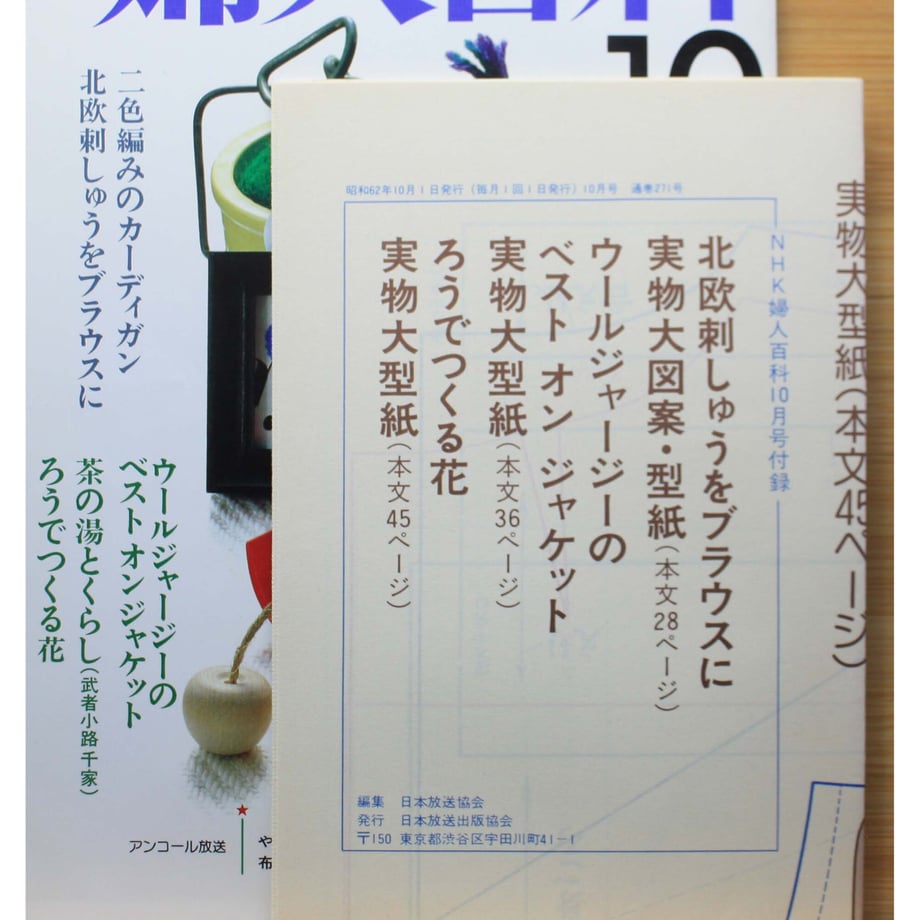 婦人百科
10
二色編みのカーディガン
北欧刺しゅうをブラウスに
ウールジャージーの
ベスト オン ジャケット
茶の湯とくらし(武者小路千家)
ろうでつくる花
★
アンコール放送
や
布
昭和62年10月1日発行(毎月1回1日発行)10月号 通巻271号
NHK婦人百科10月号付録
北欧刺しゅうをブラウスに
実物大図案・型紙(本文28ページ)
ウールジャージーの
ベスト オン ジャケット
実物大型紙(本文36ページ)
ろうでつくる花
実物大型紙(本文45ページ)
編集 日本放送協会
発行 日本放送出版協会
〒150 東京都渋谷区宇田川町41−1
実物大型紙(本文45ページ)